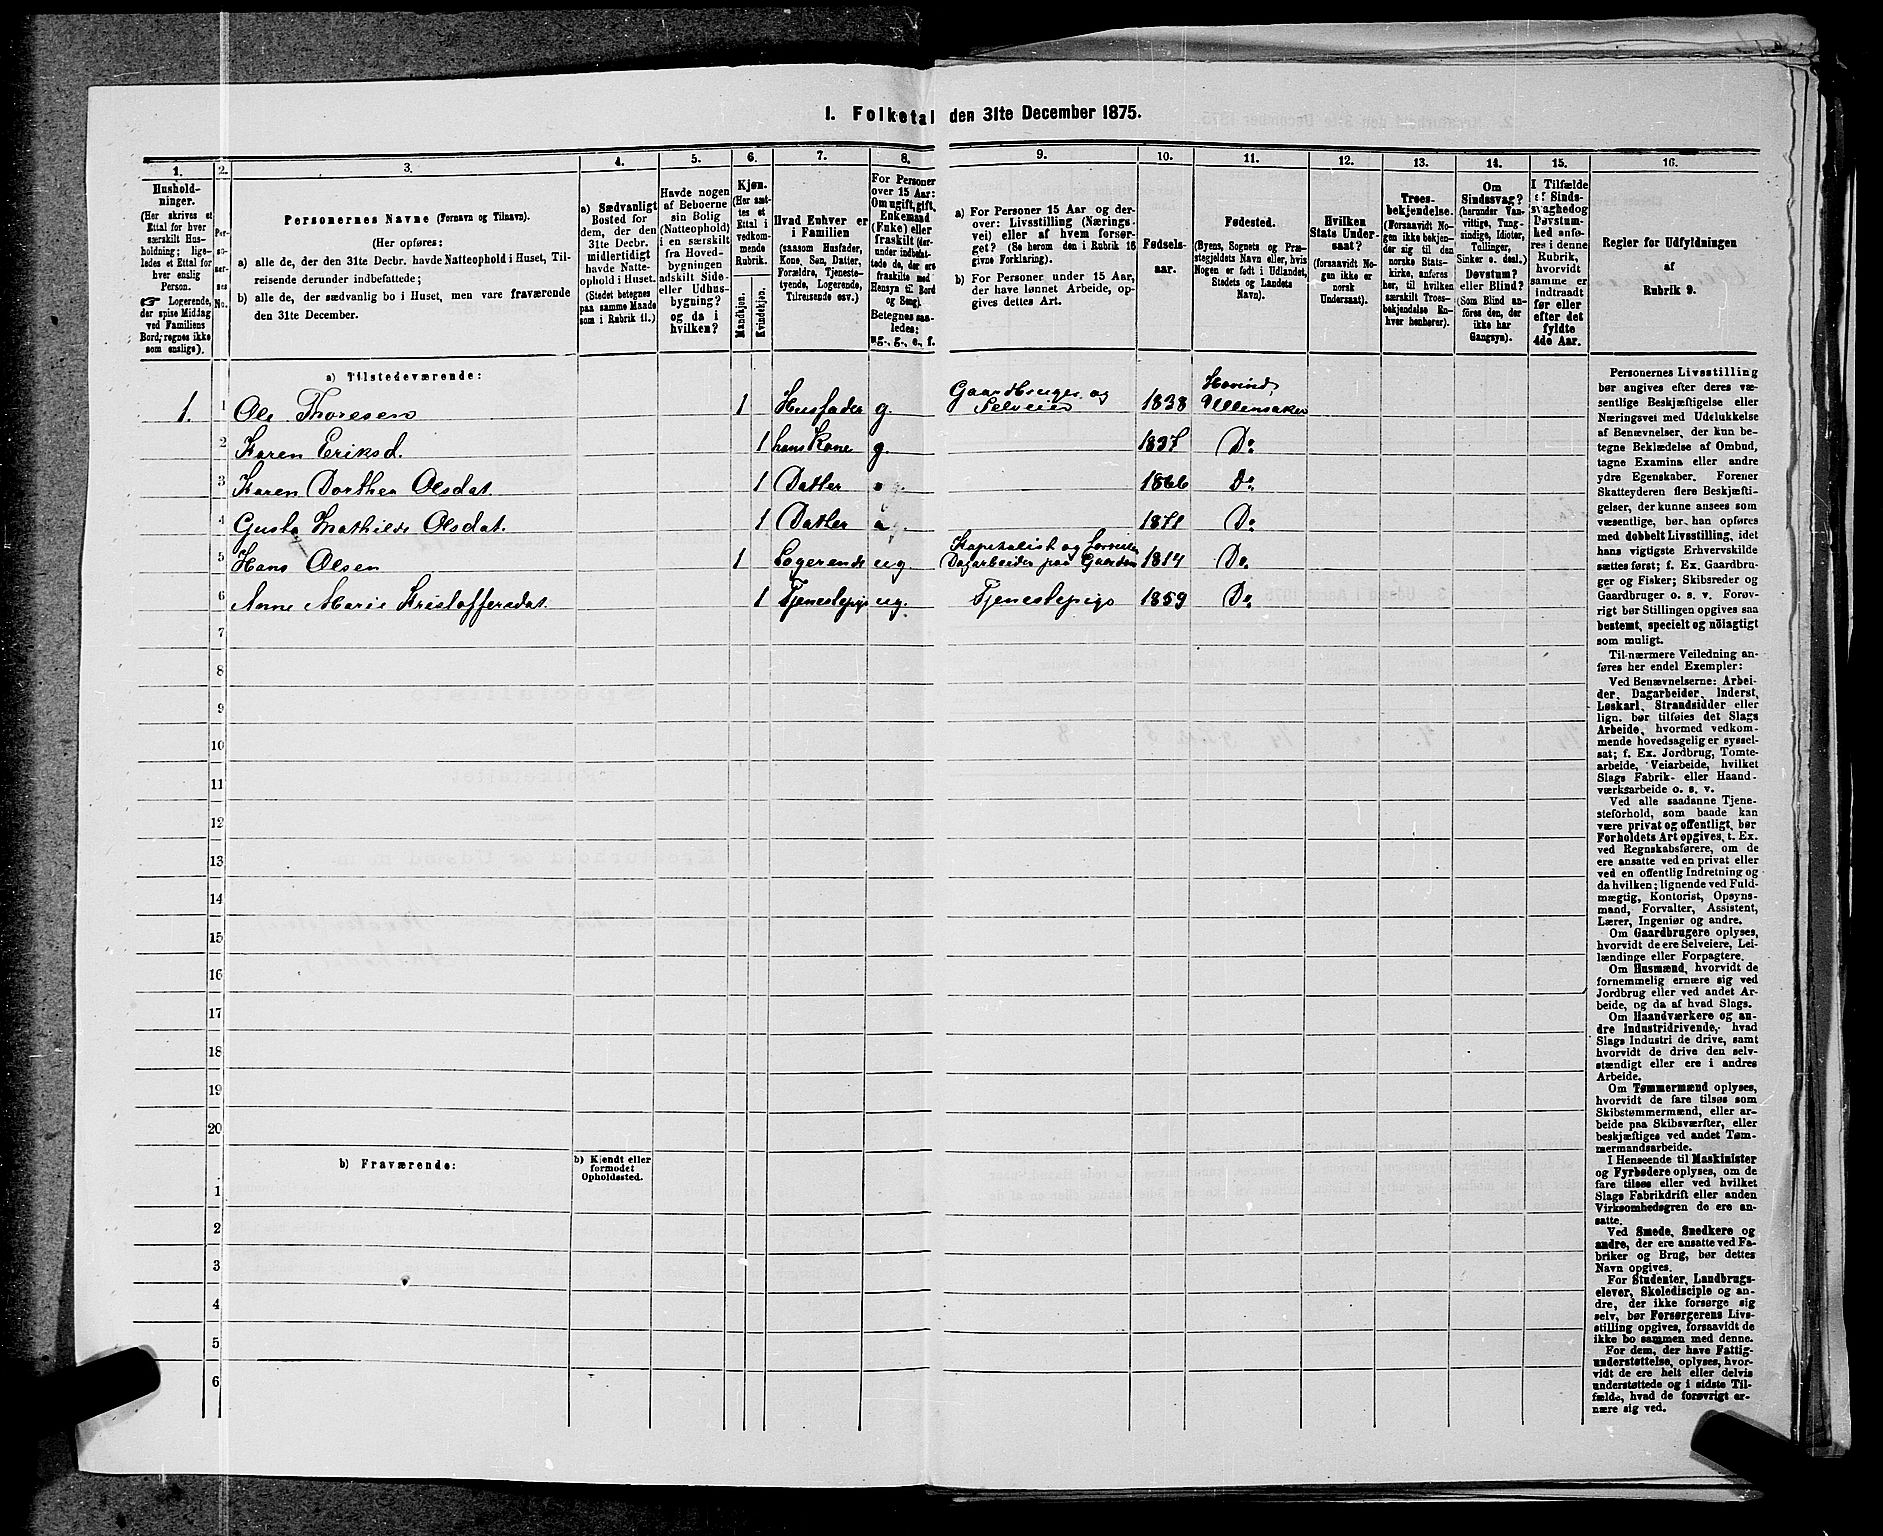 I. Folketal den 31te December 1875.
1. 2. 3. 4. 5. 6. 7. 8. 9. 10. 11. 12. 13. 14. 15. 16.
Hushold-
ninger.
(Her skrives et
Ettal for hver
særskilt Hus-
holdning; lige-
ledes et Ettal for
hver enslig
Person.
☞ Logerende,
der spise Middag
ved Familiens
Bord, regnes ikke
som enslige).
Per-
so-
ner-
nes
No.
Personernes Navne (Fornavn og Tilnavn).
(Her opføres:
a) alle de, der den 31te Decbr. havde Natteophold i Huset, Til-
reisende derunder indbefattede;
b) alle de, der sædvanlig bo i Huset, men vare fraværende
den 31te December.
a) Sædvanligt
Bosted for
dem, der den
31te Decbr.
midlertidigt
havde Natte-
ophold i Huset.
(Stedet betegnes
paa samme Maade
som i Rubrik 11.)
Havde nogen
af Beboerne
sin Bolig
(Natteophold)
i en særskilt
fra Hoved-
bygningen
adskilt Side-
eller Udhus-
bygning?
og da i
hvilken?
Kjøn.
(Her sæt-
tes et
Ettal i
vedkom-
mende
Rubrik.
Mandkjøn.
Kvindekjøn.
Hvad Enhver er
i Familien
(saasom Husfader,
Kone, Søn, Datter,
Forældre, Tjeneste-
tyende, Logerende,
Tilreisende osv.)
For Personer
over 15 Aar:
Om ugift, gift,
Enkemand
(Enke) eller
fraskilt (der-
under indbefat-
tede de, der ere
fraskilte med
Hensyn til Bord
og Seng).
Betegnes saa-
ledes:
ug., g., e., f.
a) For Personer 15 Aar og der-
over: Livsstilling (Nærings-
vei) eller af hvem forsør-
get? (Se herom den i Rubrik 16
givne Forklaring).
b) For Personer under 15 Aar,
der have lønnet Arbeide, op-
gives dettes Art.
Fødsels-
aar.
Fødested.
(Byens, Sognets og Præ-
stegjeldets Navn eller, hvis
Nogen er født i Udlandet,
Stedets og Landets
Navn).
Hvilken
Stats Under-
saat?
(forsaavidt No-
gen ikke er
norsk
Undersaat).
Troes-
bekjendelse.
(Forsaavidt No-
gen ikke bekjen-
der sig til den
norske Stats-
kirke, anføres
her, til hvilken
særskilt Troes-
bekjendelse En-
hver henhører).
Om
Sindssvag?
(herunder Van-
vittige, Tung-
sindige, Idioter,
Tullinger,
Sinker o. desl.)
Døvstum?
eller Blind?
(Som Blind an-
føres den, der
ikke har
Gangsyn).
I Tilfælde
af Sinds-
svaghed og
Døvstum-
hed anfø-
res i denne
Rubrik,
hvorvidt
samme er
indtraadt
før eller
efter det
fyldte
4de Aar.
Regler for Udfyldningen
af
Rubrik 9.
a) Tilstedeværende:
1. 1 Ole Thoresen 1 Husfader g. Gaardbruger og Selveier 1838 Hovind, Ullensaker
2 Karen Eriksd. 1 hans Kone g. 1837 Do
3 Karen Dorthea Olsdat. 1 Datter 1866 Do
4 Gusta Mathilde Olsdat. 1 Datter 1871 Do
5 Hans Olsen 1 Logerende ug. Kapitalist og Dagarbeider paa Gaarden 1814 Do
6 Anne Marie Kristoffersdat. 1 Tjenestepige ug. Tjenestepige 1859 Do
7
8
9
10
11
12
13
14
15
16
17
18
19
20
b) Fraværende:
b) Kjendt eller
formodet
Opholdssted.
1
2
3
4
5
6
Personernes Livsstilling
bør angives efter deres væ-
sentlige Beskjæftigelse eller
Næringsvei med Udelukkelse
af Benævnelser, der kun be-
tegne Beklædelse af Ombud,
tagne Examina eller andre
ydre Egenskaber. Forener
Skatteyderen flere Beskjæfti-
gelser, der kunne ansees som
væsentlige, bør han opføres
med dobbelt Livsstilling, idet
hans vigtigste Erhvervskilde
sættes først; f. Ex. Gaardbru-
ger og Fisker; Skibsreder og
Gaardbruger o. s. v. Forøv-
rigt bør Stillingen opgives saa
bestemt, specielt og nöiagtigt
som muligt.
Til nærmere Veiledning an-
føres her endel Exempler:
Ved Benævnelserne: Arbei-
der, Dagarbeider, Inderst,
Løskarl, Strandsidder eller
lign. bør tilføies det Slags
Arbeide, hvormed vedkom-
mende hovedsagelig er syssel-
sat; f. Ex. Jordbrug, Tomte-
arbeide, Veiarbeide, hvilket
Slags Fabrik- eller Haand-
værksarbeide o. s. v.
Ved alle saadanne Tjene-
steforhold, som baade kan
være privat og offentligt, bør
Forholdets Art opgives, t. Ex.
ved Regnskabsførere, om de
ere ansatte ved en privat eller
ved en offentlig Indretning og
da hvilken; lignende ved Fuld-
mægtig, Kontorist, Opsyns-
mand, Forvalter, Assistent,
Lærer, Ingeniør og andre.
Om Gaardbrugere oplyses,
hvorvidt de ere Selveiere, Lei-
lændinge eller Forpagtere.
Om Husmænd, hvorvidt de
fornemmelig ernære sig ved
Jordbrug eller ved andet Ar-
beide, og da af hvad Slags.
Om Haandværkere og an-
dre Industridrivende, hvad
Slags Industri de drive, samt
hvorvidt de drive den selv-
stændigt eller ere i andres
Arbeide.
Om Tømmermænd oplyses,
hvorvidt de fare tilsøs som
Skibstømmermænd, eller ar-
beide paa Skibsværfter, eller
beskjæftiges ved andet Tøm-
mermandsarbeide.
I Henseende til Maskinister
og Fyrbødere oplyses, om de
fare tilsøs eller ved hvilket
Slags Fabrikdrift eller anden
Virksomhedsgren de ere an-
satte.
Ved Smede, Snedkere og
andre, der ere ansatte ved Fa-
briker og Brug, bør dettes
Navn opgives.
For Studenter, Landbrugs-
elever, Skoledisciple og an-
dre, der ikke forsørge sig
selv, bør Forsørgerens Livs-
stilling opgives, forsaavidt de
ikke bo sammen med denne.
For dem, der have Fattig-
understøttelse, oplyses, hvor-
vidt de ere helt eller delvis
understøttede og i sidste Til-
fælde, hvad de forøvrigt er-
nære sig ved.